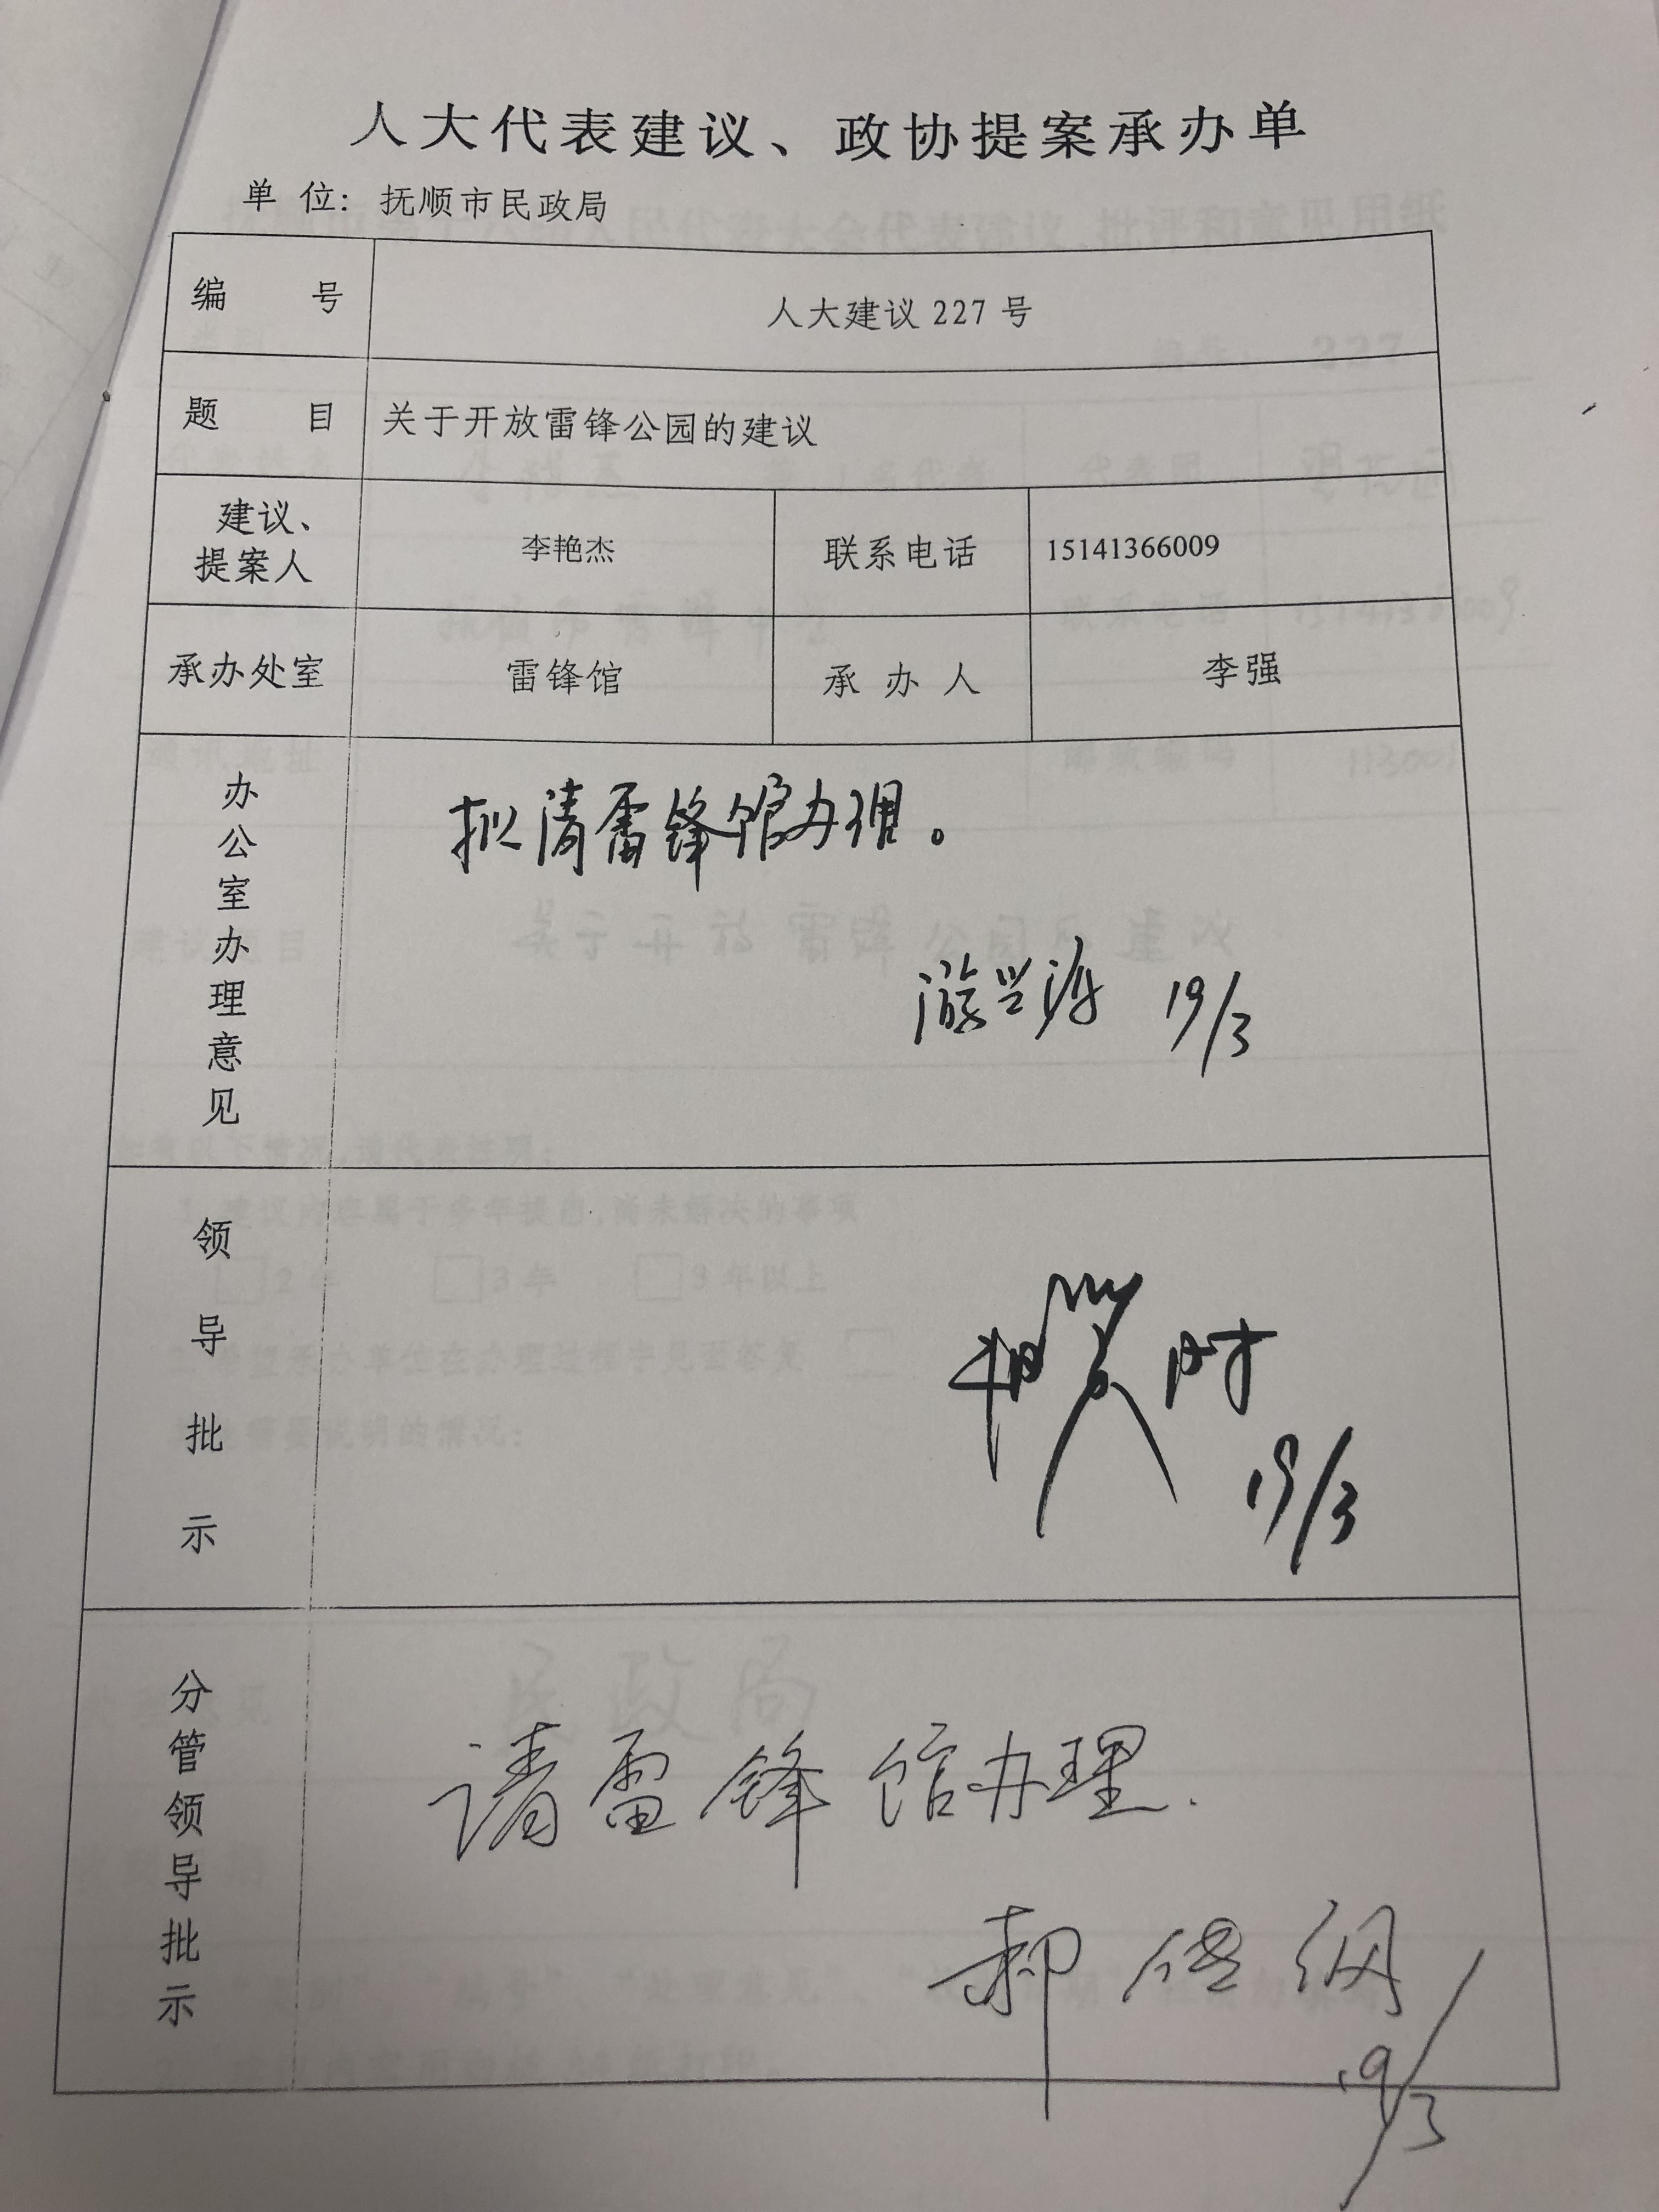 人大代表建议、政协提案承办单
单 位：抚顺市民政局
编 号 人大建议 227 号
题 目 关于开放雷锋公园的建议
建议、提案人 李艳杰 联系电话 15141366009
承办处室 雷锋馆 承办人 李强
办公室办理意见
拟请雷锋馆办理。
19/3
领导批示
19/3
分管领导批示
请雷锋馆办理.
郝
19/3